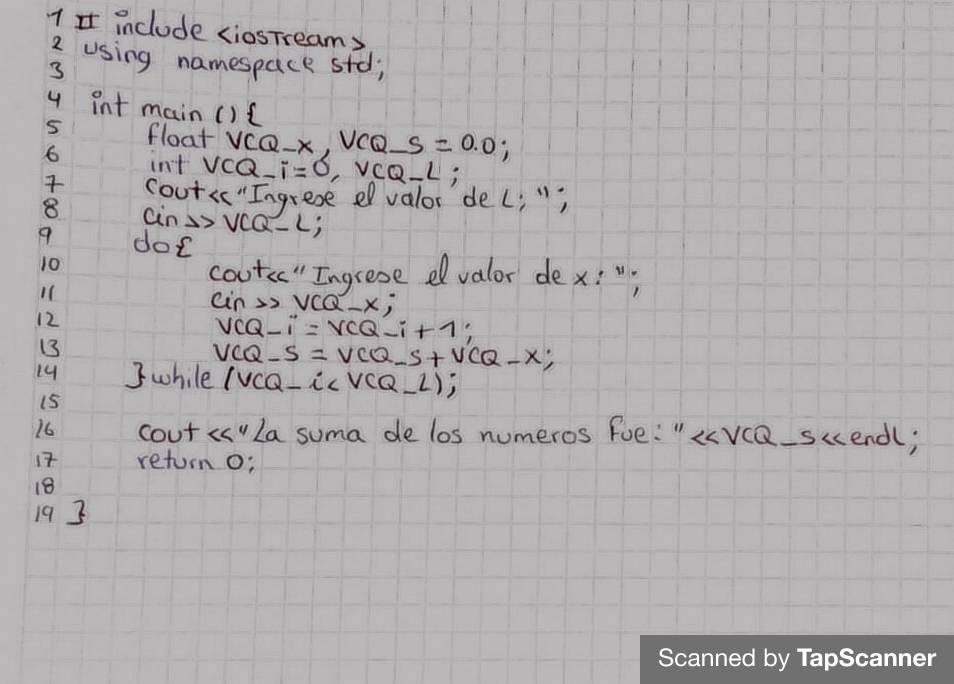 1 # include <iostream>
2 using namespace std;
3
4 int main () {
5 float VCQ_x, VCQ_s = 0.0;
6 int VCQ_i=0, VCQ_L;
7 cout<<"Ingrese el valor de L: ";
8 cin>> VCQ_L;
9 do{
10 cout<<"Ingrese el valor de x: ";
11 cin >> VCQ_x;
12 VCQ_i = VCQ_i + 1;
13 VCQ_s = VCQ_s + VCQ_x;
14 } while (VCQ_i< VCQ_L);
15
16 cout <<"La suma de los numeros fue: "<<VCQ_s<<endl;
17 return 0;
18
19 }
Scanned by TapScanner